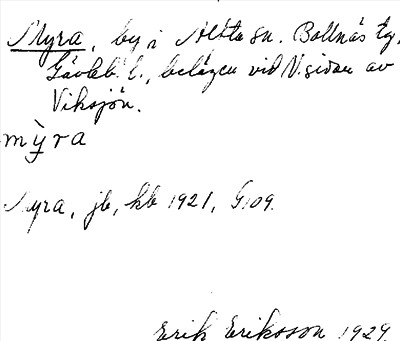 Myra, by i Alfta sn. Bollnäs tg,
Gävleb. l., belägen vid N. sidan av
Viksjön.
mỳra
Myra, jb, kb 1921, G109.
Erik Eriksson 1929.